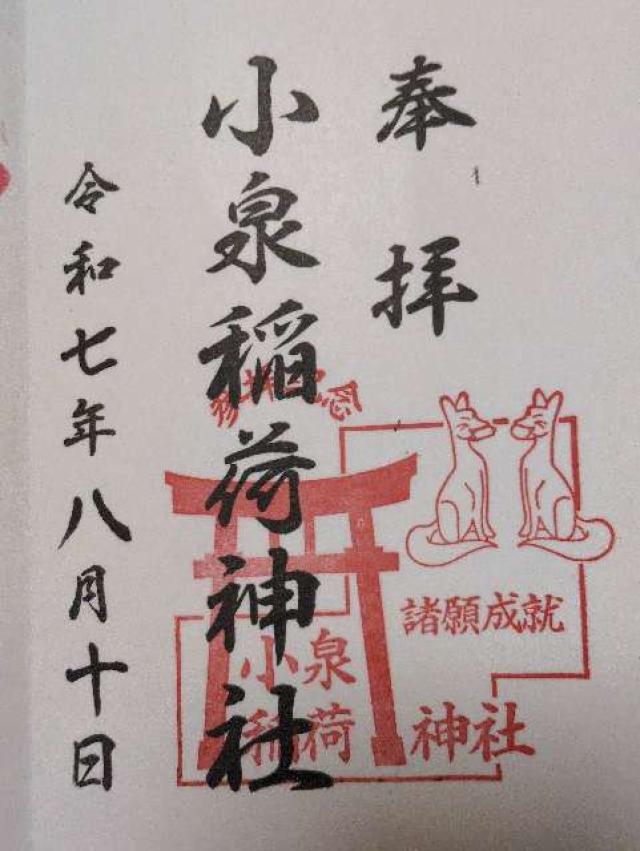 奉拝
小泉稲荷神社
令和七年八月十日
参拝記念
諸願成就
小泉
稲荷神社